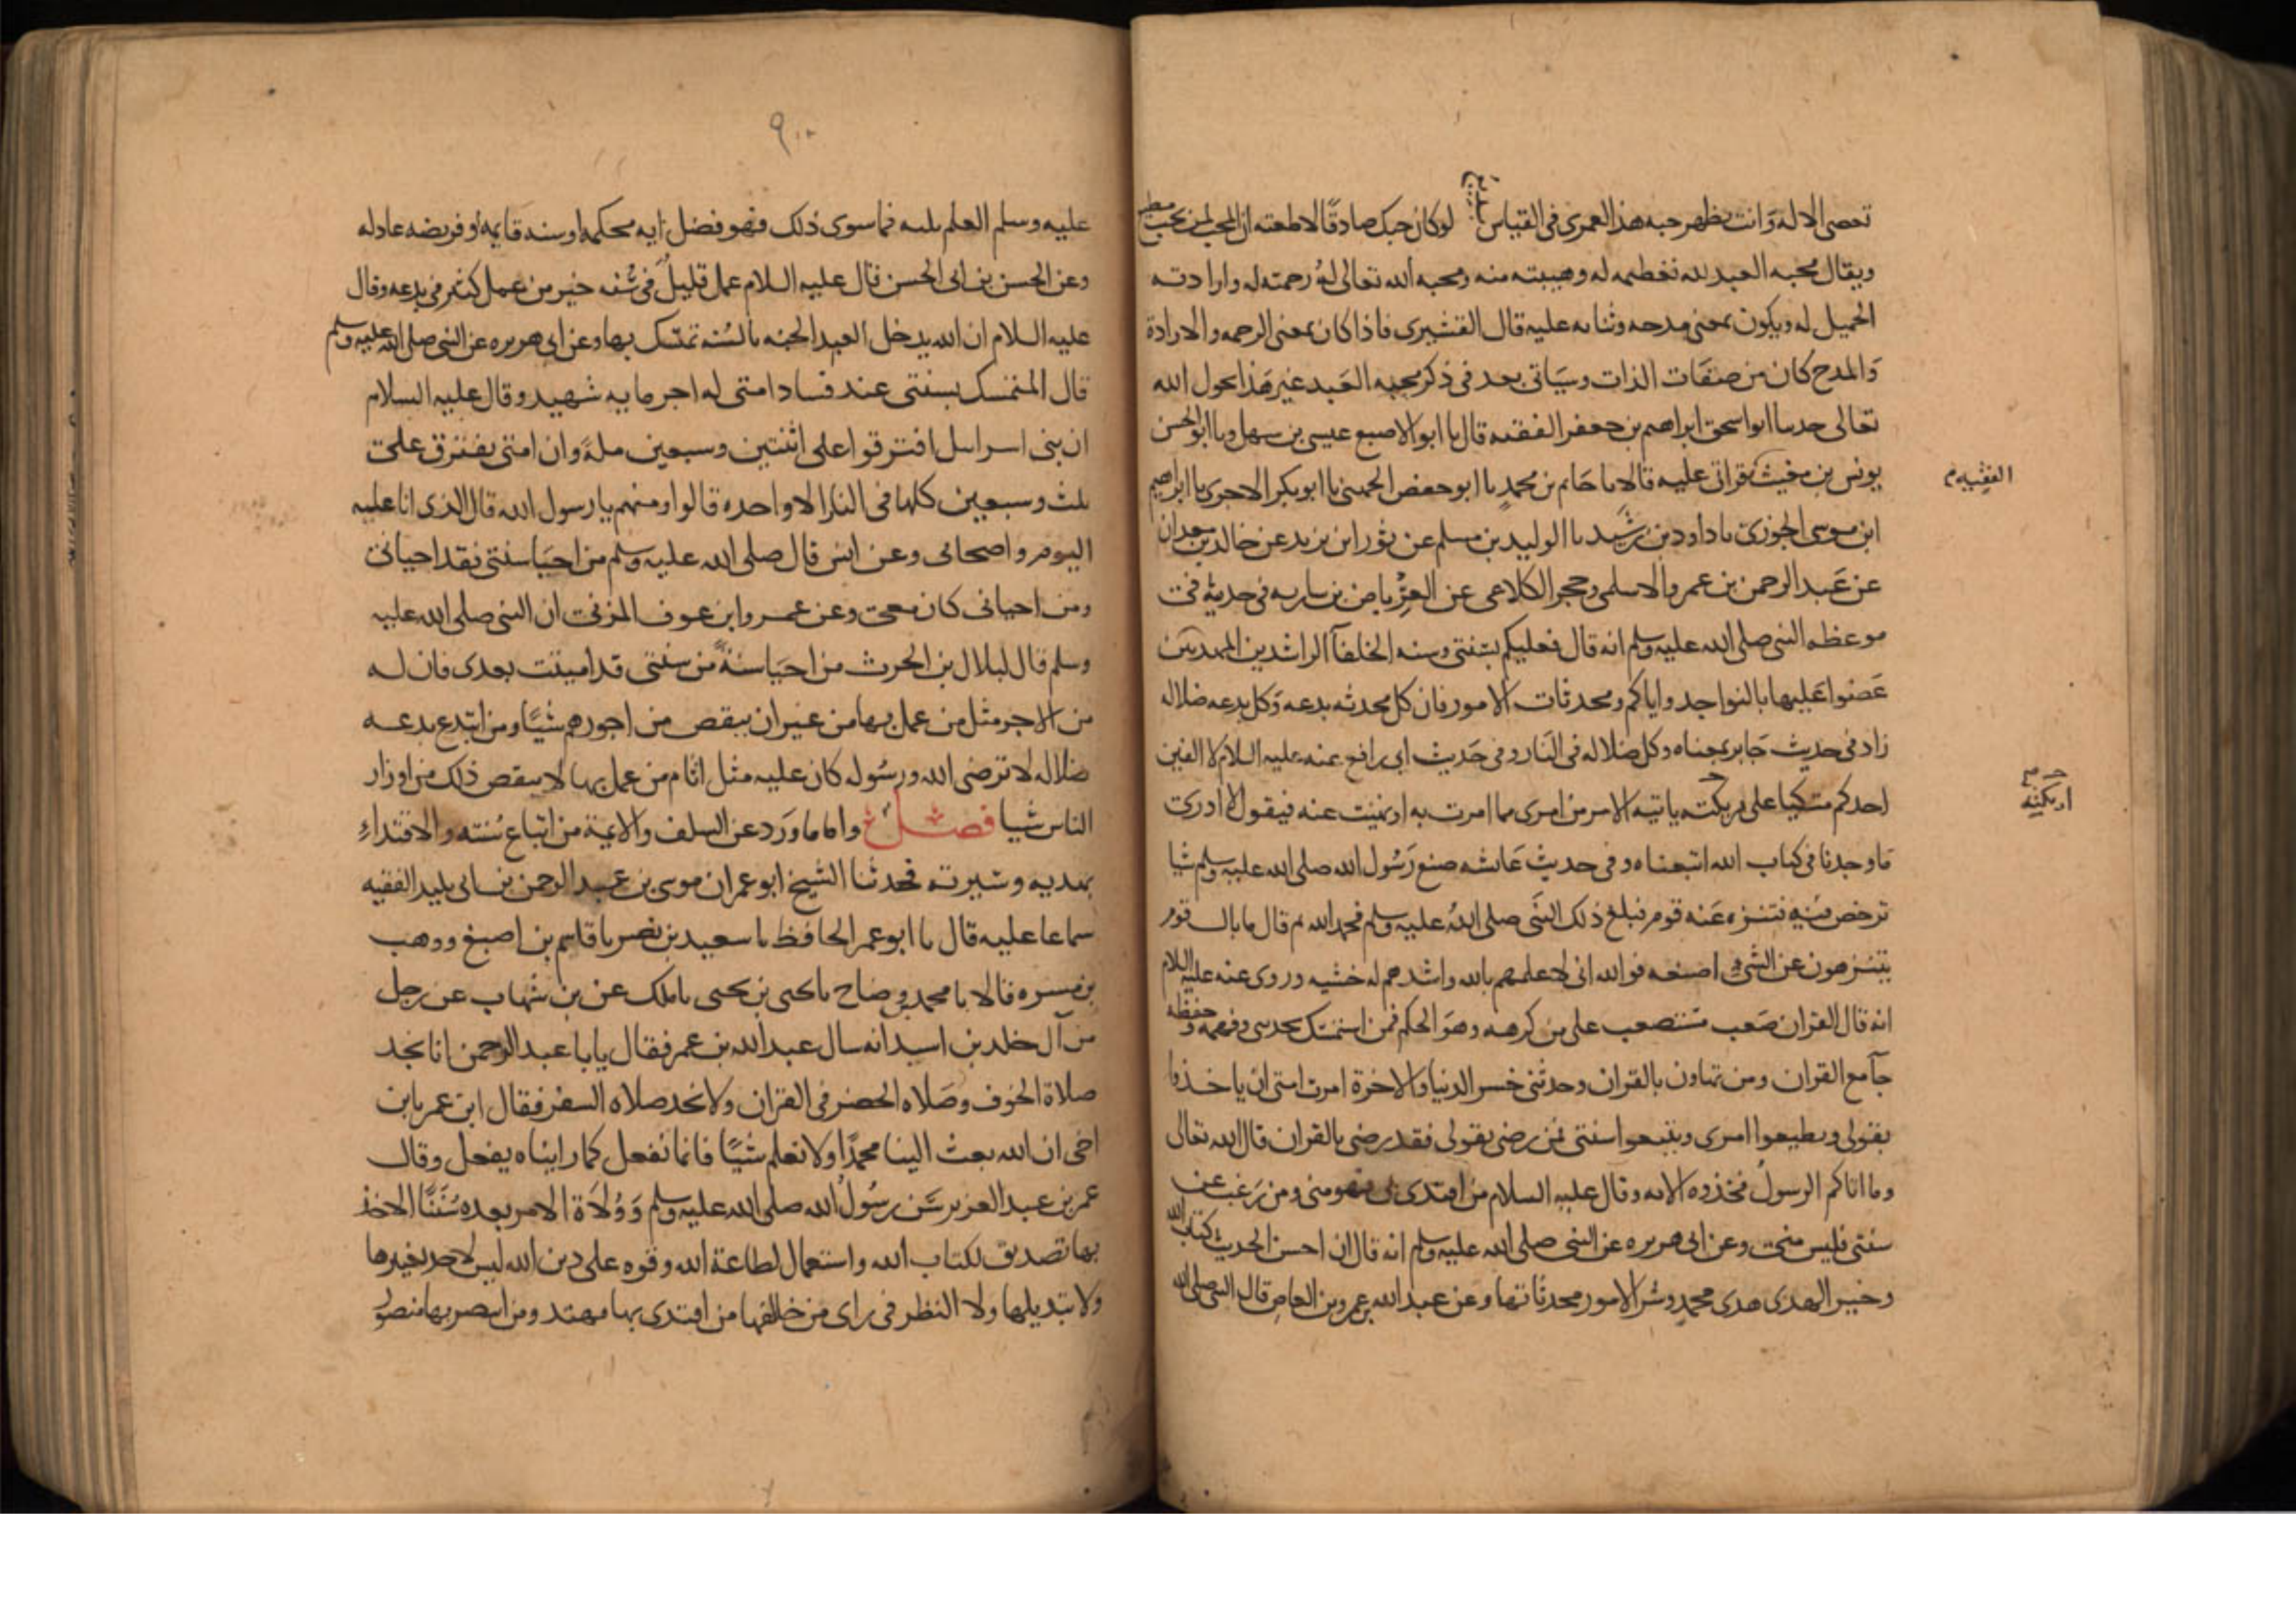 تعصى الاله وانت تظهر حبه هذا لعمرى فى القياس بديع لو كان حبك صادقا لاطعته ان المحب لمن يحب مطيع
ويقال محبه العبد لله تعظيمه له وهيبته منه ومحبه الله تعالى له رحمته له وارادته
الجميل له ويكون بمعنى مدحه وثنايه عليه قال القشيرى فاذا كان بمعنى الرحمه والارادة
والمدح كان من صفات الذات وسياتى بعد فى ذكر محبه العبد غير هذا بحول الله
تعالى حدسا ابواسحق ابراهيم بن جعفر الفقيه قال با ابو الاصبع عيسى بن سهل وبا ابو الحسن
يونس بن مغيث بقراتى عليه قالا با حاتم بن محمد با ابو حفص الجهنى با ابو بكر الاجرى با ابراهيم
الفقيه م
ابن موسى الجوزى با داود بن رشيد با الوليد بن مسلم عن ثور ابن يزيد عن خالد بن معدان
عن عبد الرحمن بن عمرو الاسلمى وحجر الكلاعى عن العرباض بن ساريه فى حديثه فى
موعظه النبى صلى الله عليه وسلم انه قال فعليكم بسنتى وسنه الخلفآ الراشدين المهديين
عضوا عليها بالنواجد واياكم ومحدثات الامور فان كل محدثه بدعه وكل بدعه ضلاله
زاد فى حديث جابر بمعناه وكل ضلاله فى النار وفى حديث ابى رافع عنه عليه السلام لا الفين
احدكم متكيا على اريكته ياتيه الامر من امرى مما امرت به او نهيت عنه فيقول لا ادرى
اريكته
ما وجدنا فى كتاب الله اتبعناه وفى حديث عائشه صنع رسول الله صلى الله عليه وسلم شيا
ترخص فيه فتنزه عنه قوم فبلغ ذلك النبى صلى الله عليه وسلم فحمد الله ثم قال ما بال قوم
يتنزهون عن الشى اصنعه فوالله انى لاعلمهم بالله واشدهم له خشيه وروى عنه عليه السلام
انه قال القران صعب مستصعب على من كرهه وهو الحكم فمن استمسك بحدىىى وفهمه وحفظه
جآمع القران ومن تهاون بالقران وحدثنى خسر الدنيا والاخرة امرت امتى ان ياخذوا
بقولى ويطيعوا امرى ويتبعوا سنتى فمن رضى بقولى فقد رضى بالقران قال الله تعالى
وما اتاكم الرسول فخذوه الايه وقال عليه السلام من اقتدى بى فهو منى ومن رغب عن
سنتى فليس منى وعن ابى هريره عن النبى صلى الله عليه وسلم انه قال ان احسن الحديث كتاب الله
وخير الهدى هدى محمد وشر الامور محدثاتها وعن عبد الله بن عمرو بن العاص قال النبى صلى الله
٩٠
عليه وسلم العلم ثلثه فما سوى ذلك فهو فضل ايه محكمه او سنه قايمه او فريضه عادله
وعن الحسن بن ابى الحسن قال عليه السلام عمل قليل فى سنه خير من عمل كثير فى بدعه وقال
عليه السلام ان الله يدخل العبد الجنه بالسنه تمسك بها وعن ابى هريره عن النبى صلى الله عليه وسلم
قال المتمسك بسنتى عند فساد امتى له اجر مايه شهيد وقال عليه السلام
ان بنى اسرايل افترقوا على اثنتين وسبعين ملة وان امتى تفترق على
ثلث وسبعين كلها فى النار الا واحده قالوا ومنهم يا رسول الله قال الذى انا عليه
اليوم واصحابى وعن انس قال صلى الله عليه وسلم من احيا سنتى فقد احيانى
ومن احيانى كان معى وعن عمرو ابن عوف المزنى ان النبى صلى الله عليه
وسلم قال لبلال بن الحرث من احيا سنة من سنتى قد اميتت بعدى فان له
من الاجر مثل من عمل بها من غير ان ينقص من اجورهم شيا ومن ابتدع بدعه
ضلاله لا ترضى الله ورسوله كان عليه مثل اثام من عمل بها لا ينقص ذلك من اوزار
الناس شيا فصل واما ما ورد عن السلف والايمة من اتباع سنته والاقتداء
بهديه وسيرته فحدثنا الشيخ ابو عمران موسى بن عبد الرحمن بن ابى تليد الفقيه
سماعا عليه قال با ابو عمر الحافظ با سعيد بن نصر با قاسم بن اصبغ ووهب
بن مسره قالا با محمد بن وضاح با يحيى بن يحيى با ملك عن بن شهاب عن رجل
من آل خلد بن اسيد انه سال عبد الله بن عمر فقال يا با عبد الرحمن انا نجد
صلاة الخوف وصلاه الحضر فى القران ولا نجد صلاه السفر فقال ابن عمر يا بن
اخى ان الله بعث الينا محمدا ولا نعلم شيا فانما نفعل كما رايناه يفعل وقال
عمر بن عبد العزيز سن رسول الله صلى الله عليه وسلم وولاة الامر بعده سننا الاخذ
بها تصديق لكتاب الله واستعمال لطاعة الله وقوه على دين الله ليس لاحد تغييرها
ولا تبديلها ولا النظر فى راى من خالفها من اقتدى بها مهتد ومن انتصر بها منصور